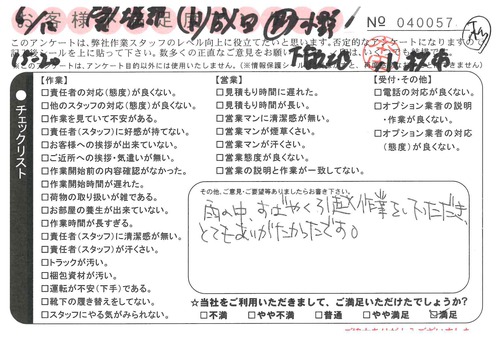 № 040057
このアンケートは、弊社作業スタッフのレベル向上に役立てたいと思います。否定的な
チェックリスト
【作業】
□責任者の対応(態度)が良くない。
□他のスタッフの対応(態度)が良くない。
□作業を見ていて不安がある。
□責任者(スタッフ)に好感が持てない。
□お客様への挨拶が出来ていない。
□ご近所への挨拶・気遣いが無い。
□作業開始前の内容確認がなかった。
□作業開始時間が遅れた。
□荷物の取り扱いが雑である。
□お部屋の養生が出来ていない。
□作業時間が長すぎる。
□責任者(スタッフ)に清潔感が無い。
□責任者(スタッフ)が汗くさい。
□トラックが汚い。
□梱包資材が汚い。
□運転が不安(下手)である。
□靴下の履き替えをしてない。
□スタッフにやる気がみられない。
【営業】
□見積もり時間に遅れた。
□見積もり時間が長い。
□営業マンに清潔感が無い。
□営業マンが煙草くさい。
□営業マンが汗くさい。
□営業態度が良くない。
□営業の説明と作業が一致してない。
【受付・その他】
□電話の対応が良くない。
□オプション業者の説明
・作業が良くない。
□オプション業者の対応
(態度)が良くない。
その他、ご意見・ご要望等ありましたらお書き下さい。
雨の中、すばやく引越し作業をしていただき、
とてもありがたかったです。
☆当社をご利用いただきまして、ご満足いただけたでしょうか?
□不満 □やや不満 □普通 □やや満足 ☑満足